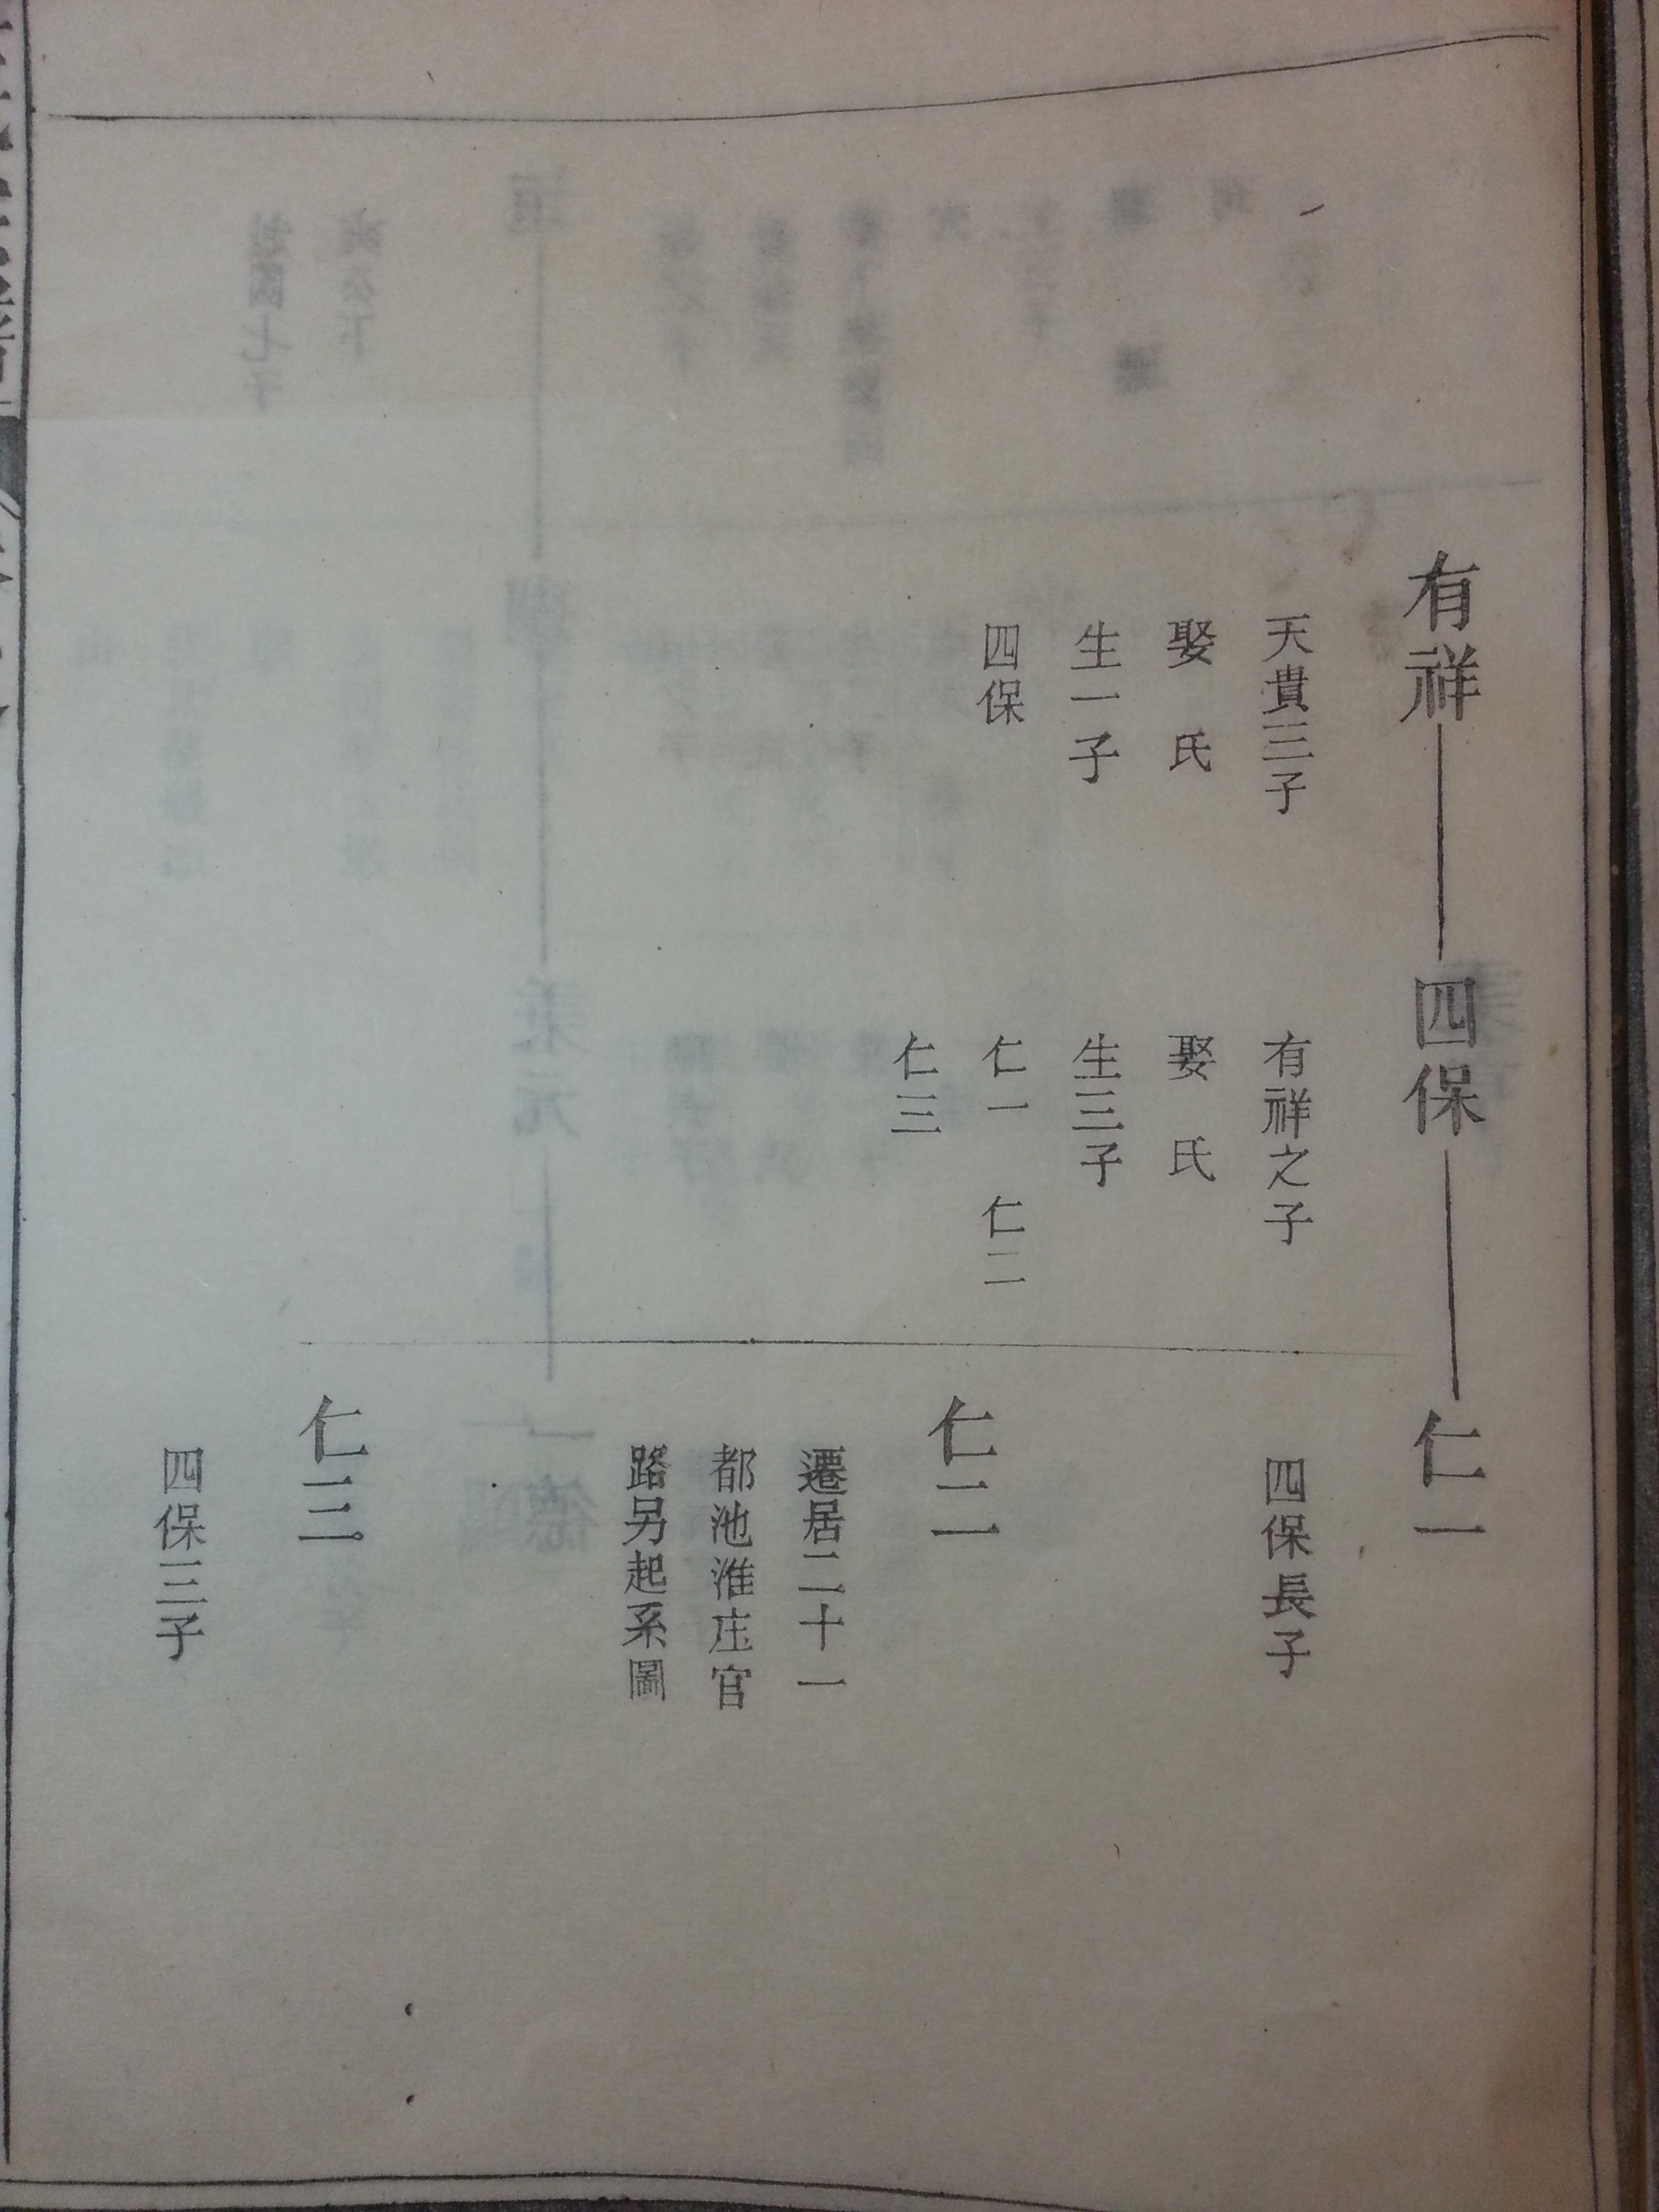 有祥
天貴三子
娶 氏
生一子
四保
四保
有祥之子
娶 氏
生三子
仁一 仁二
仁三
仁一
四保長子
仁二
遷居二十一
都池淮庄官
路另起系圖
仁三
四保三子